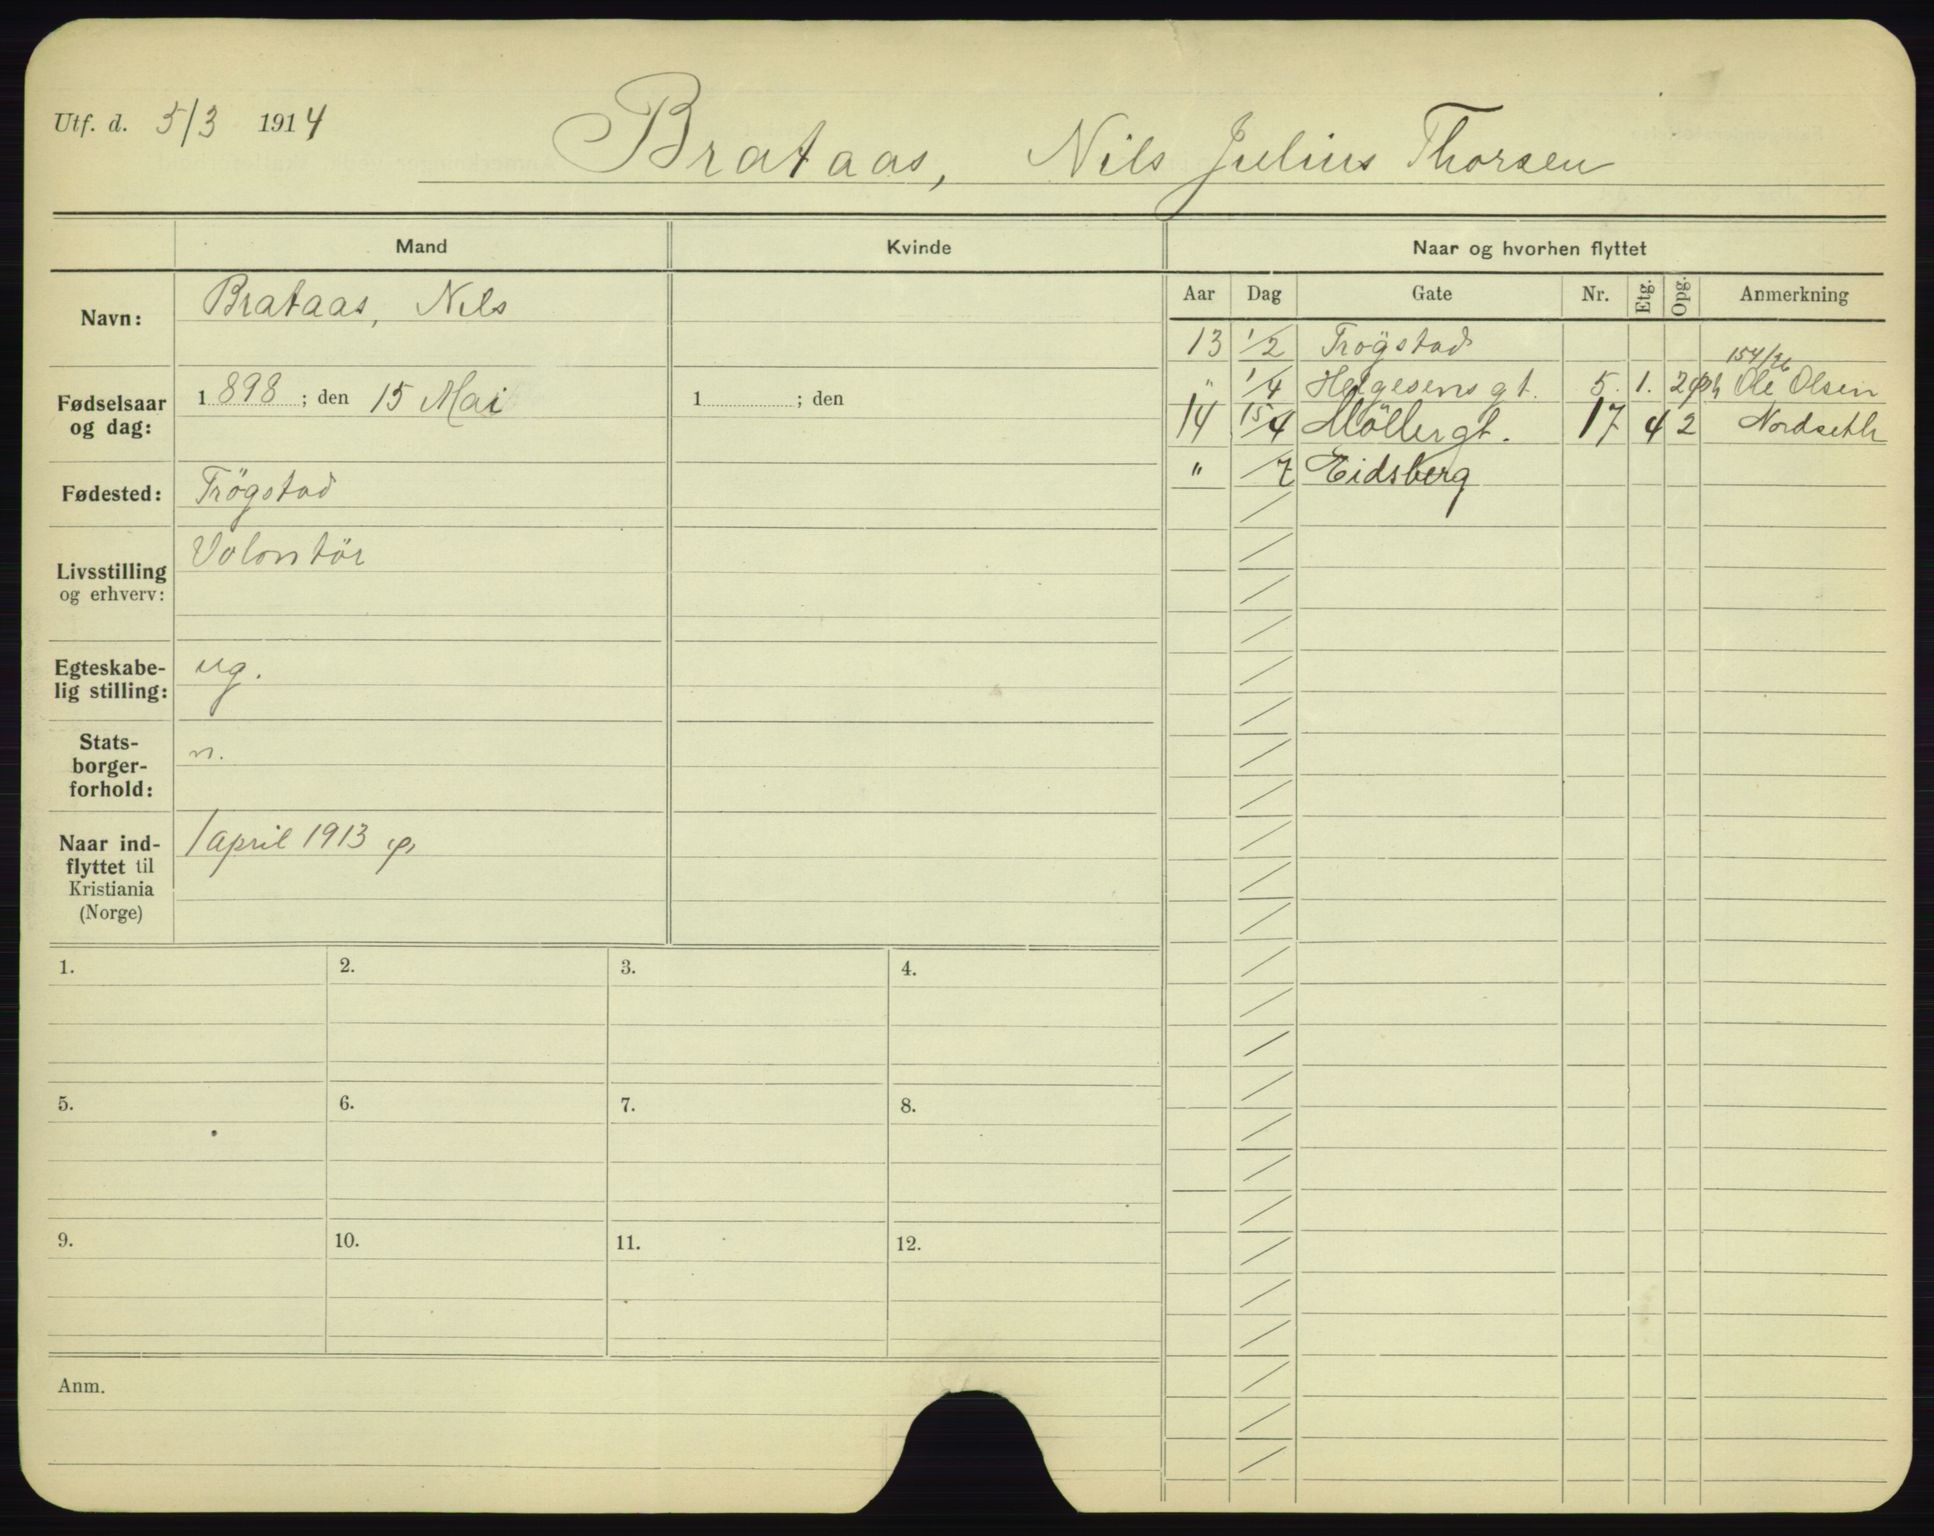 Utf. d. 5/3 1914
Brataas, Nils Julius Thorsen
Mand Kvinde Naar og hvorhen flyttet
Aar Dag Gate Nr. Etg. Opg. Anmerkning
Navn: Brataas, Nils
Fødselsaar og dag: 1898; den 15 Mai 1 ; den
Fødested: Trögstad
Livsstilling og erhverv: Volontör
Egteskabe-
lig stilling: ug.
Stats-
borger-
forhold: n.
Naar ind-
flyttet til
Kristiania
(Norge) 1 april 1913
13 1/2 Trögstad
154/26
" 1/4 Helgesens gt. 5. 1. 2 Ole Olsen
14 15/4 Möllergt. 17 4 2 Nordseth
" /7 Eidsberg
1. 2. 3. 4.
5. 6. 7. 8.
9. 10. 11. 12.
Anm.